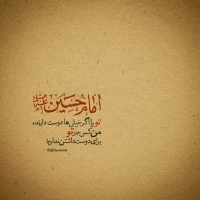 امام حسین علیه السلام
تو را اگر خیلی ها دوست دارند،
من کسی جز تو
برای دوست داشتن ندارم!